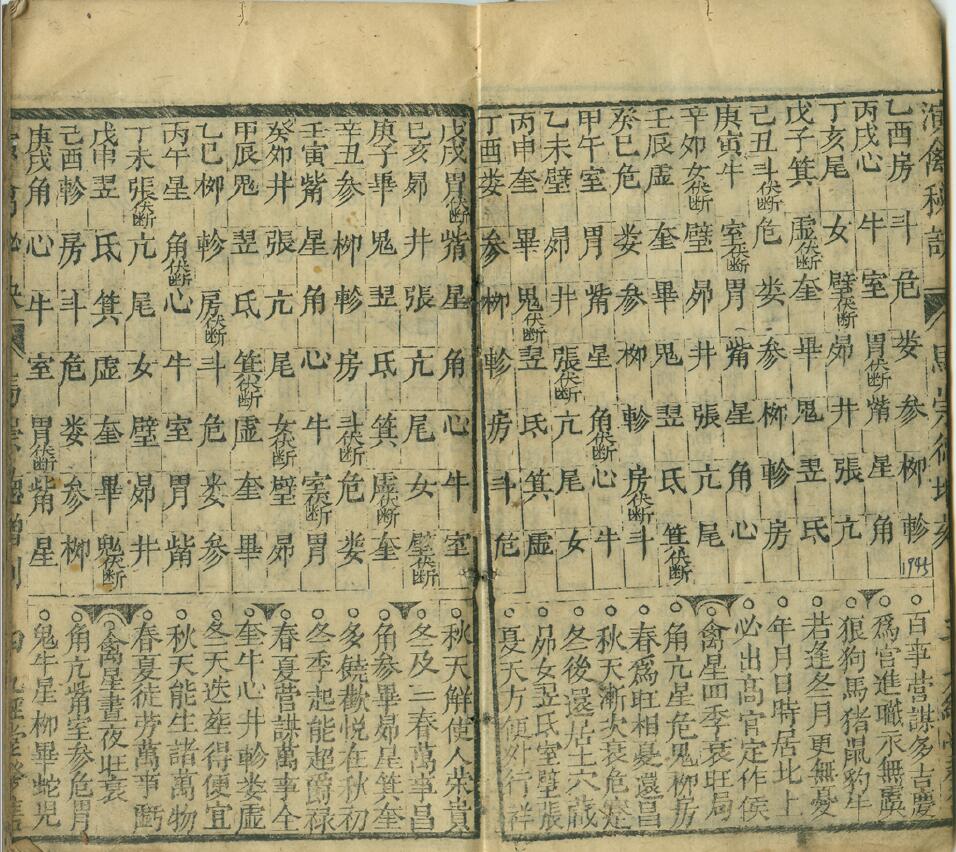 演禽秘訣
乙酉房 斗 危 娄 参 柳 軫
丙戌心 牛 室 胃伏断 觜 星 角
丁亥尾 女 壁伏断 昴 井 張 亢
戊子箕 虛伏断 奎 畢 鬼 翌 氐
己丑斗伏断 危 娄 参 柳 軫 房
庚寅牛 室伏断 胃 觜 星 角 心
辛夘女伏断 壁 昴 井 張 亢 尾
壬辰虛 奎 畢 鬼 翌 氐 箕伏断
癸巳危 娄 参 柳 軫 房伏断 斗
甲午室 胃 觜 星 角伏断 心 牛
乙未壁 昴 井 張伏断 亢 尾 女
丙申奎 畢 鬼伏断 翌 氐 箕 虛
丁酉娄 参 柳 軫 房 斗 危
1945
百事营謀多吉慶
爲官進職永無虞
狼狗馬猪鼠豹牛
若逢冬月更無憂
年月日時居北上
必出高官定作侯
禽星四季衰旺局
角亢星危鬼柳房
春爲旺相憂還昌
秋天漸次衰危定
冬後還居土穴藏
昴女翌氐室壁張
夏天方便外行祥
戊戌胃伏断 觜 星 角 心 牛 室
己亥昴 井 張 亢 尾 女 壁伏断
庚子畢 鬼 翌 氐 箕 虛伏断 奎
辛丑参 柳 軫 房 斗伏断 危 娄
壬寅觜 星 角 心 牛 室伏断 胃
癸夘井 張 亢 尾 女伏断 壁 昴
甲辰鬼 翌 氐 箕伏断 虛 奎 畢
乙巳柳 軫 房伏断 斗 危 娄 参
丙午星 角伏断 心 牛 室 胃 觜
丁未張伏断 亢 尾 女 壁 昴 井
戊申翌 氐 箕 虛 奎 畢 鬼伏断
己酉軫 房 斗 危 娄 参 柳
庚戌角 心 牛 室 胃伏断 觜 星
秋天解使人荣貴
冬及二春萬事昌
角参畢昴星箕奎
多饒歡悦在秋初
冬季起能超爵禄
春夏营謀萬事全
奎牛心井軫娄虛
冬天迭塟得便宜
秋天能生諸萬物
春夏徒劳萬事虧
禽星晝夜旺衰
角亢觜室参危胃
鬼牛星柳畢蛇兒